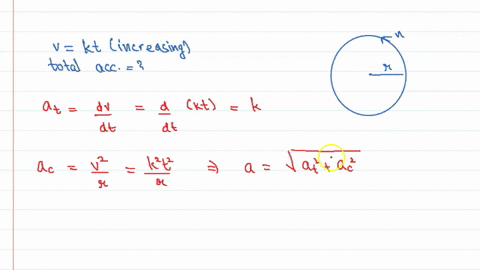 v = kt (increasing)
total acc. = ?
v
r
a_t = dv/dt = d/dt (kt) = k
a_c = v²/r = k²t²/r ⇒ a = √(a_t² + a_c²)